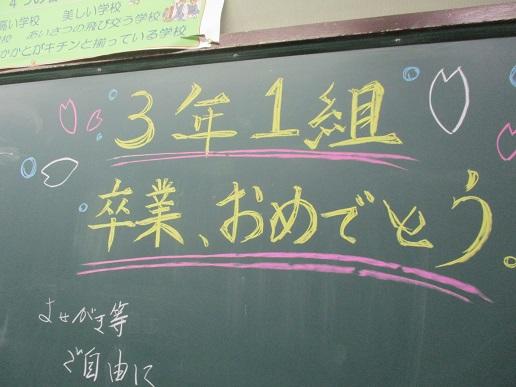 美しい学校
あいさつの飛び交う学校
かかとがキチンと揃っている学校
3年1組
卒業、おめでとう。
よせがき等
ご自由に